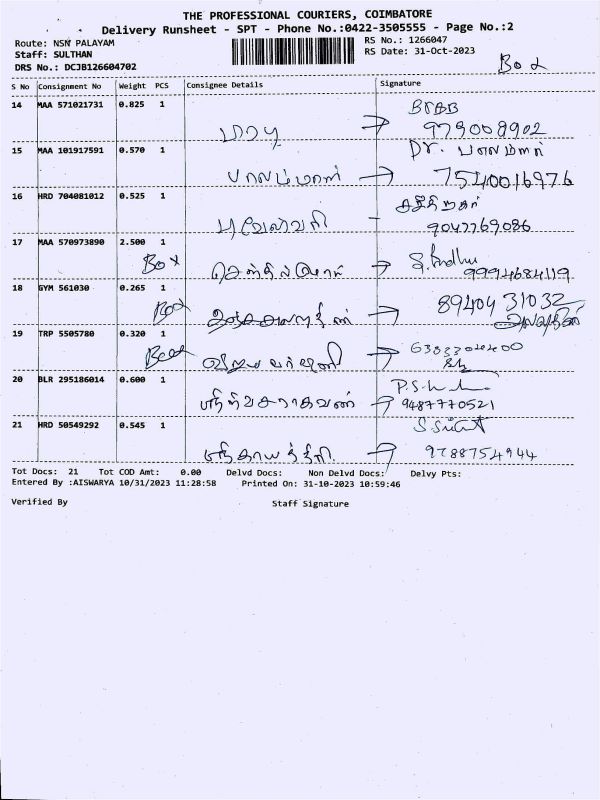 THE PROFESSIONAL COURIERS, COIMBATORE
Delivery Runsheet - SPT - Phone No.:0422-3505555 - Page No.:2
Route: NSN PALAYAM
RS No.: 1266047
Staff: SULTHAN
RS Date: 31-Oct-2023
DRS No.: DCJB126604702
Box
S No Consignment No Weight PCS Consignee Details Signature
14 MAA 571021731 0.825 1
979008902
15 MAA 101917591 0.570 1 Dr. பாலம்மாள்
பாலம்மாள் → 7540016976
16 HRD 704081012 0.525 1
9047769086
17 MAA 570973890 2.500 1
Box → 9994684119
18 GYM 561030 0.265 1
Box → 89404 31032
19 TRP 5505780 0.320 1
Box →
20 BLR 295186014 0.600 1
ஸ்ரீநிவாசராகவன் → 9487770521
21 HRD 50549292 0.545 1
ஸ்ரீகாயத்ரி → 9788754944
Tot Docs: 21 Tot COD Amt: 0.00 Delvd Docs: Non Delvd Docs: Delvy Pts:
Entered By :AISWARYA 10/31/2023 11:28:58 Printed On: 31-10-2023 10:59:46
Verified By Staff Signature